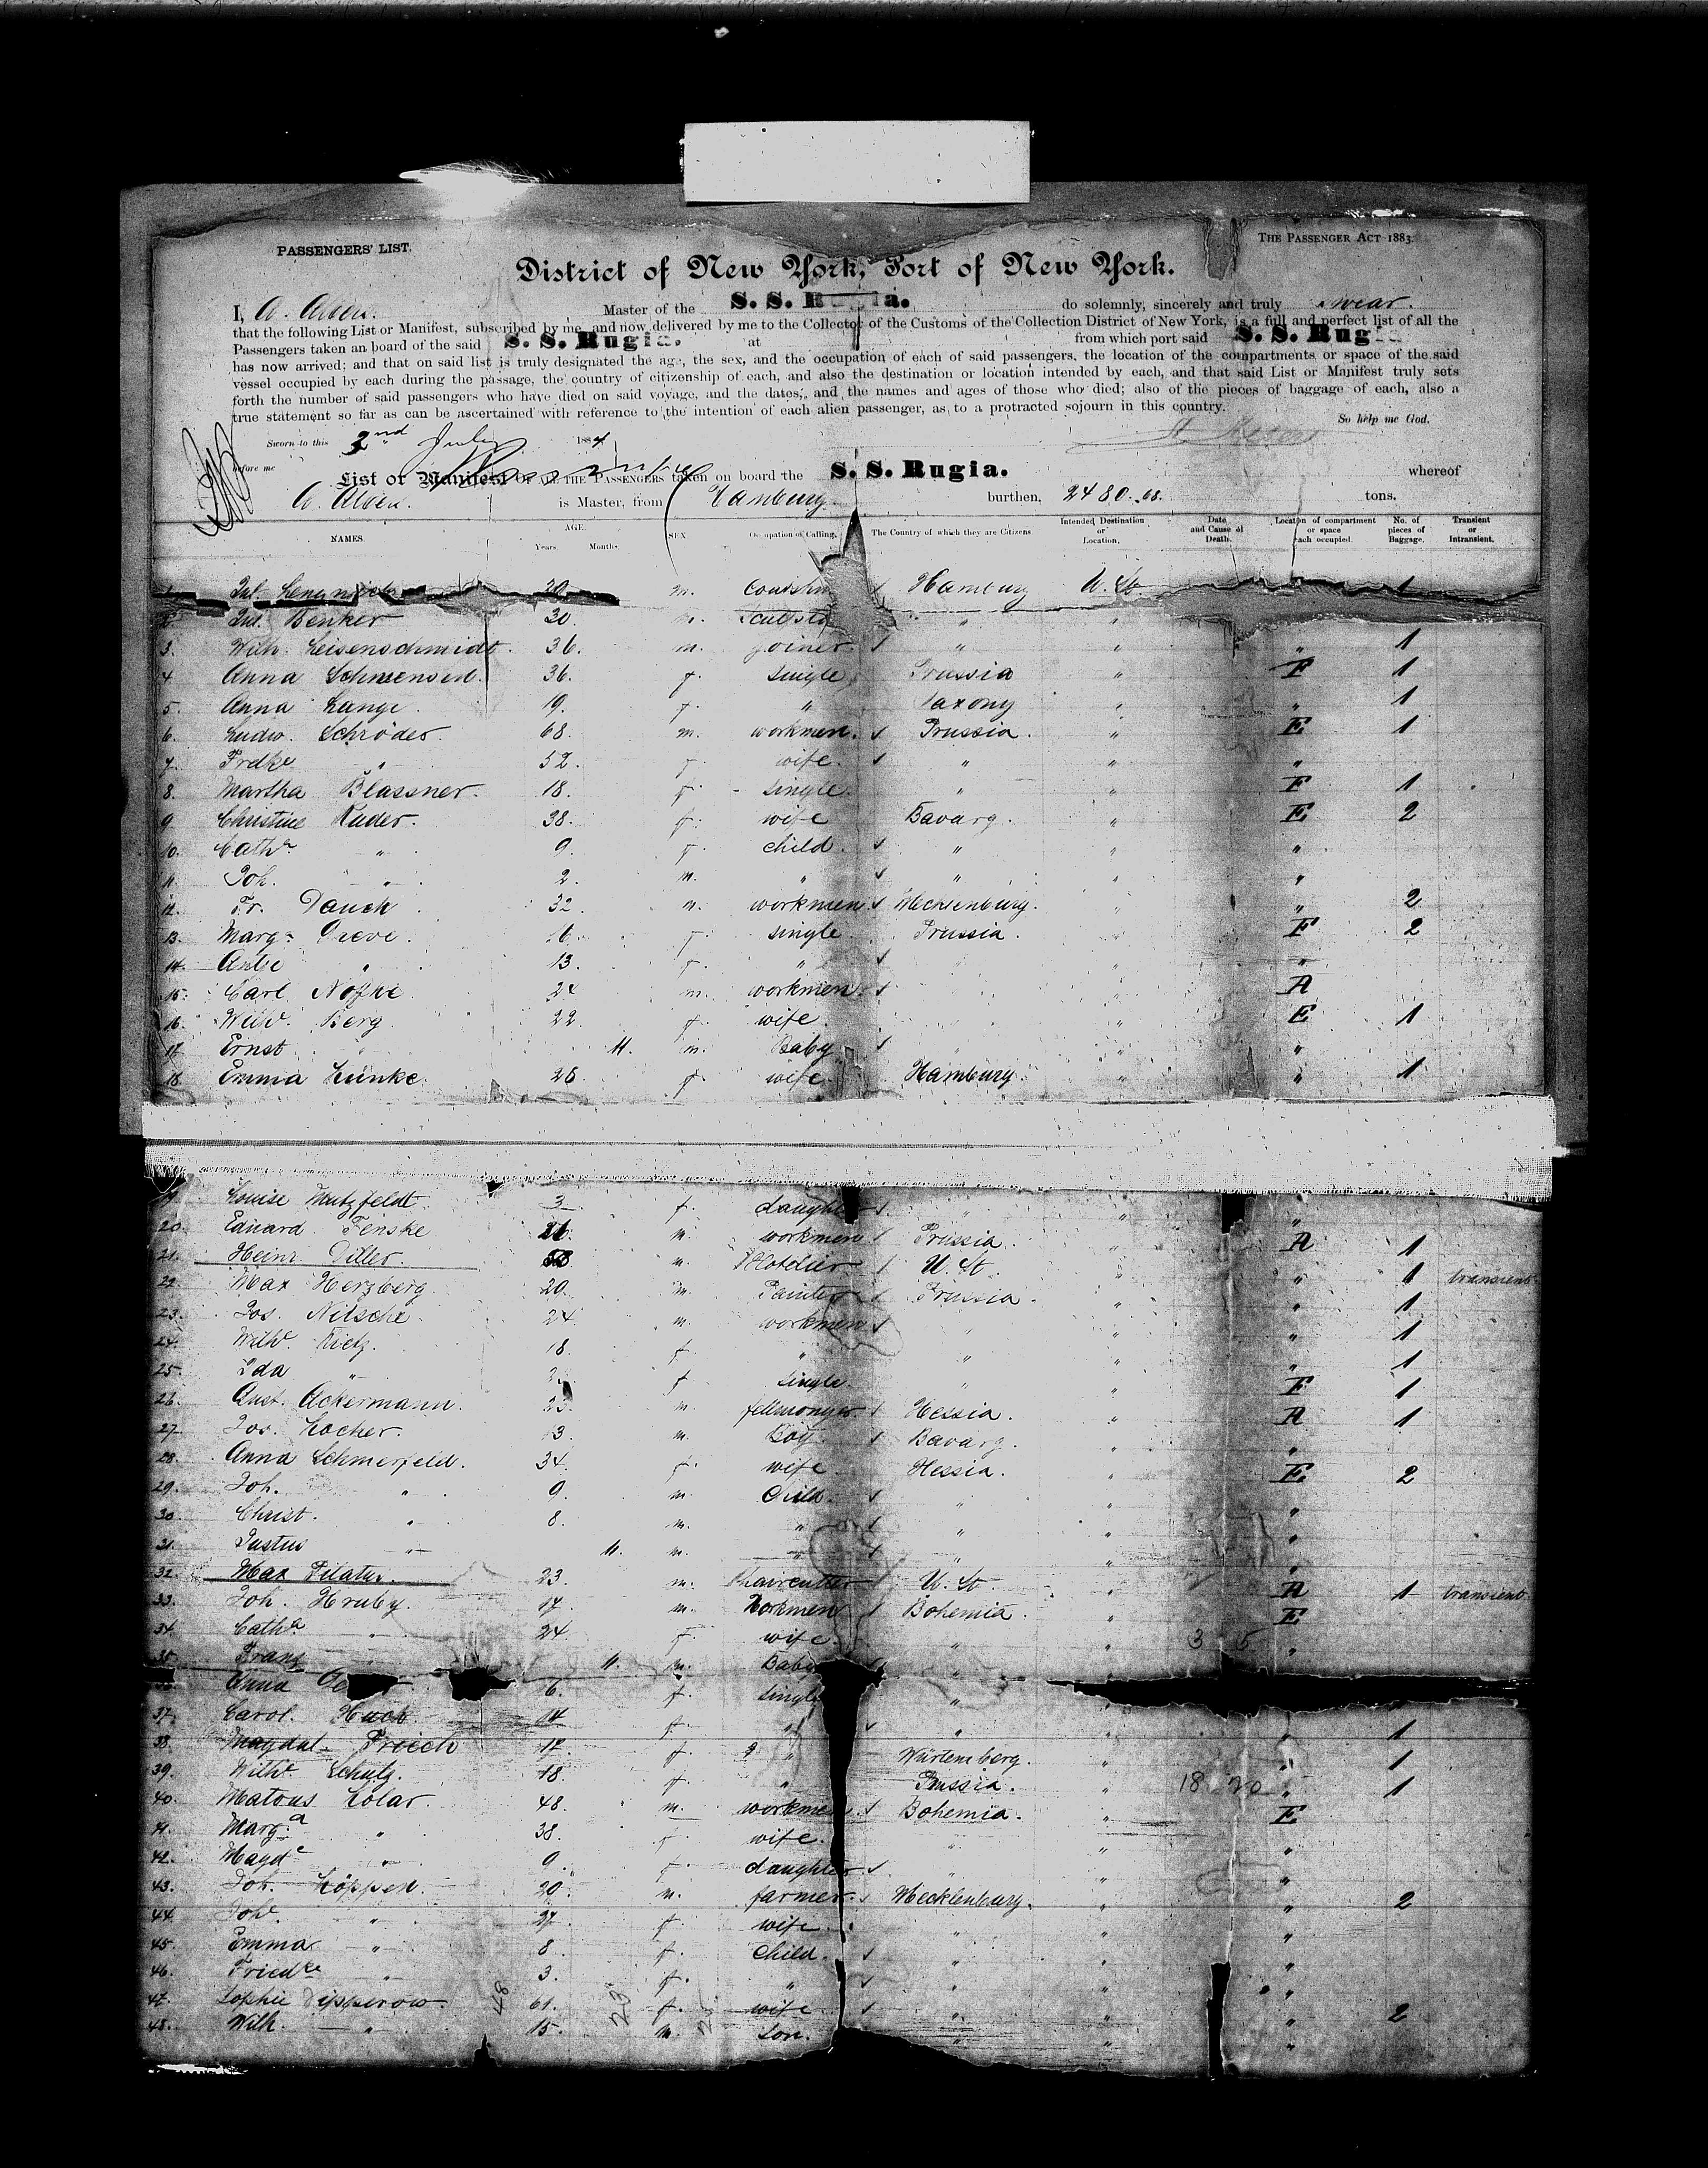 PASSENGERS' LIST.
THE PASSENGER ACT 1883.
District of New York, Port of New York.
I, A. Albers. Master of the S. S. Rugia. do solemnly, sincerely and truly swear.
that the following List or Manifest, subscribed by me, and now delivered by me to the Collector of the Customs of the Collection District of New York, is a full and perfect list of all the
Passengers taken an board of the said S. S. Rugia. at from which port said S. S. Rugia
has now arrived; and that on said list is truly designated the age, the sex, and the occupation of each of said passengers, the location of the compartments or space of the said
vessel occupied by each during the passage, the country of citizenship of each, and also the destination or location intended by each, and that said List or Manifest truly sets
forth the number of said passengers who have died on said voyage, and the dates, and the names and ages of those who died; also of the pieces of baggage of each, also a
true statement so far as can be ascertained with reference to the intention of each alien passenger, as to a protracted sojourn in this country.
So help me God.
Sworn to this 2nd July 1884
before me
List or Manifest OF ALL THE PASSENGERS taken on board the S. S. Rugia. whereof
A. Albers. is Master, from Hamburg burthen, 2480.08. tons.
NAMES. AGE. Years. Months. SEX Occupation of Calling. The Country of which they are Citizens Intended Destination or Location. Date and Cause of Death. Location of compartment or space each occupied. No. of pieces of Baggage. Transient or Intransient.
1. Jul. 20 m. Hamburg U. St. 1
2. Jul. Benker 30. m. " "
3. Wilh. Leisenschmidt. 36. m. joiner " " " 1
4 Anna Schmensen. 36. f. single Prussia " F 1
5. Anna Lange. 19. f. " Saxony " " 1
6. Ludw. Schröder. 68. m. workmen. Prussia. " E 1
7. Fredke " 52. f. wife. " " "
8. Martha Blassner. 18. f. single. " " F 1
9. Christine Rader. 38. f. wife Bavarg. " E 2
10. Catha " 9. f. child. " " "
11. Joh. " 2. m. " " " "
12. Fr. Dauck 32. m. workmen Mecklenburg. " " 2
13. Marga Greve. 16. f. single Prussia. " F 2
14. Antje " 13. f. " "
15. Carl 24 m. workmen. A
16. Wilhe. Berg. 22. f. wife. " E 1
17. Ernst " 11. m. Baby " "
18. Emma Lünke. 26. f. wife. Hamburg. " " 1
19. Louise Mutzfeldt. 3. f. daughter " " "
20. Eduard Fenske 26. m. workmen Prussia. " A 1
21. Heinr. Diller. m. Hotelier U. St. " " 1 transient
22. Max Herzberg. 20. m. Painter Prussia. " " 1
23. Jos. Nitsche. 24. m. workmen " " " 1
24. Wilhe. Rietz. 18. f. " " " " 1
25. Ida " f. single. " " F 1
26. Aust. Ackermann. 23. m. fellmonger. Hessia. " A 1
27. Jos. Locher. 13. m. Boy. Bavarg. " "
28. Anna Schmerfeld. 34. f. wife. Hessia. " E 2
29. Joh. " 9. m. Child. " " "
30. Christ. " 8. m. " " " "
31. Justus " 11. m. " " " "
32. Max Pilatus. 23. m. haircutter U. St. " A 1 transient
33. Joh. Hruby. 17. m. Workmen Bohemia. " E
34. Catha " 24. f. wife. " " 3 5 "
35. Franz 11. m. Baby "
Anna 6. f. single "
37. Carol. Huch 14 f. " " " " 1
38. Magdal. Friech 17 f. " Würtemberg. " " 1
39. Wilhe. Schulz. 18. f. " Prussia. " 18 20 " 1
40. Matous Kolar. 48. m. workmen. Bohemia. " E
41. Marga " 38. f. wife. " " "
42. Magde " 9. f. daughter. " " "
43. Joh. Köppen. 29. m. farmer. Mecklenburg. " " 2
44. Johe. " 27. f. wife. " " "
45. Emma " 8. f. Child. " " "
46. Friedke " 3. f. " " " "
47. Sophie Dipperow. 61. f. wife " " " 2
48. Wilh. " 15. m. Son. " " "
48 23 25